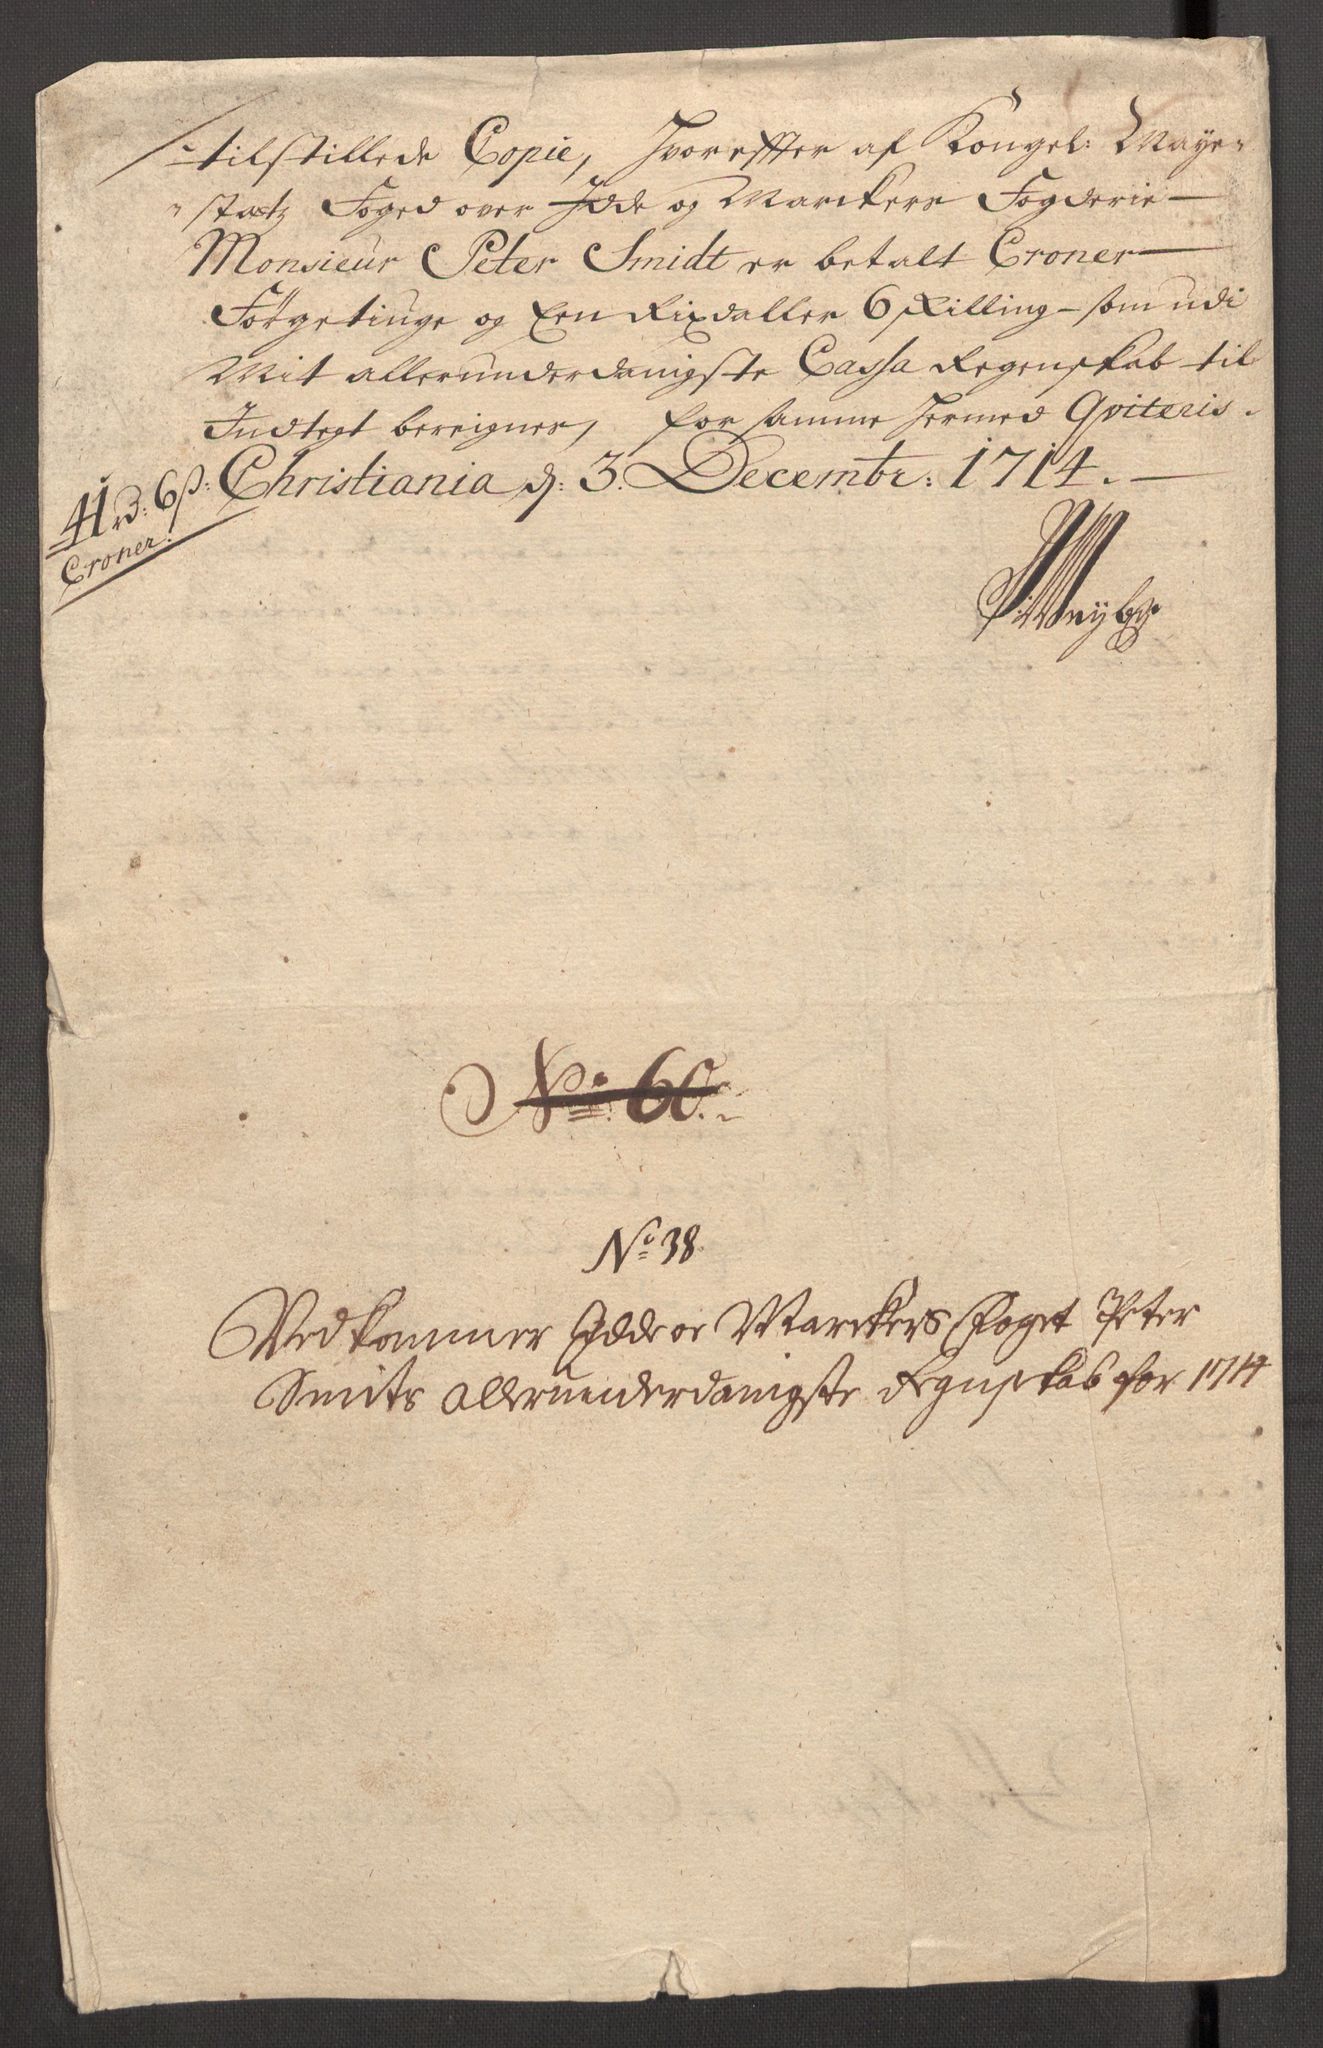 tilstillede Copie, Hvoreffter af Kongel: Maye-
statz Foged over Idde og Marckers Fogderie
Monsieur Peter Smidt er betalt Croner
Förgetinge og Een Rixdaller 6 skilling som udi
Mit allerunderdanigste Cassa Regenskab til
Indtegt bereignes, for samme hermed Qviteris.
Christiania d: 3. Decembr: 1714.
41 rd: 6 ß:
Croner:
No: 60.
No 38.
Vedkommer Idde oc Marckers Foget Peter
Smits allerunderdanigste Regnskab for 1714